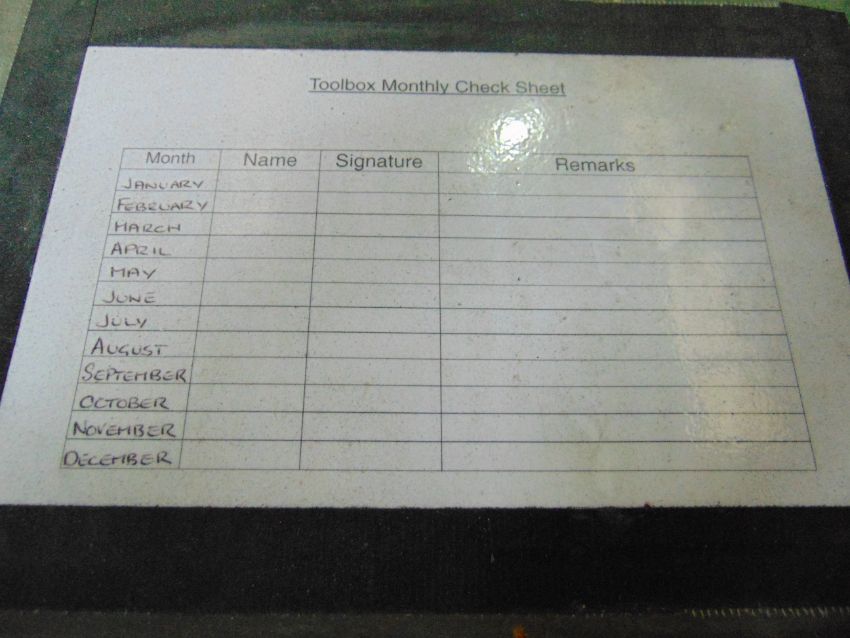 Toolbox Monthly Check Sheet
Month Name Signature Remarks
JANUARY
FEBRUARY
MARCH
APRIL
MAY
JUNE
JULY
AUGUST
SEPTEMBER
OCTOBER
NOVEMBER
DECEMBER